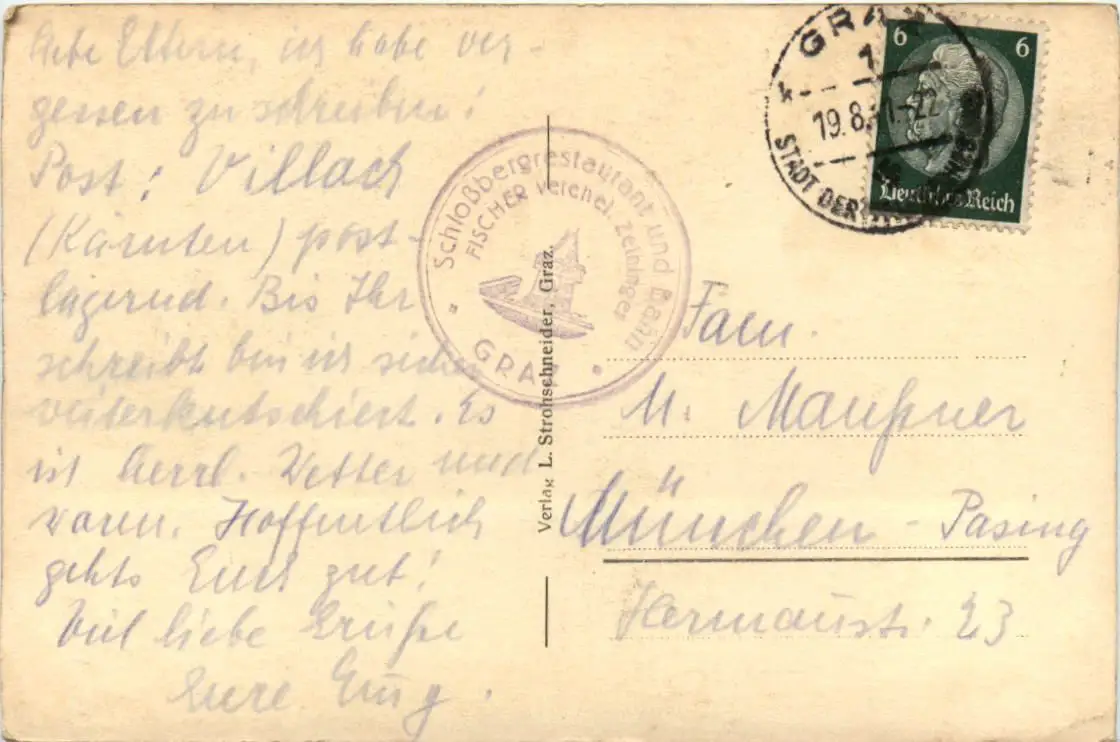 Liebe Eltern, ich habe ver-
gessen zu schreiben!
Post: Villach
(Kärnten) post-
lagernd. Bis Ihr
schreibt bin ich sicher
weiterkutschiert. Es
ist herrl. Wetter und
warm. Hoffentlich
gehts Euch gut!
Viel liebe Grüße
Eure
GRAZ
1
19.8.41.-22
STADT DER
6 6
Deutsches Reich
Schloßbergrestaurant und Bahn
FISCHER verehel. Zeininger
GRAZ
Verlag L. Strohschneider, Graz.
Fam.
M. Maußner
München - Pasing
Hermannstr. 23